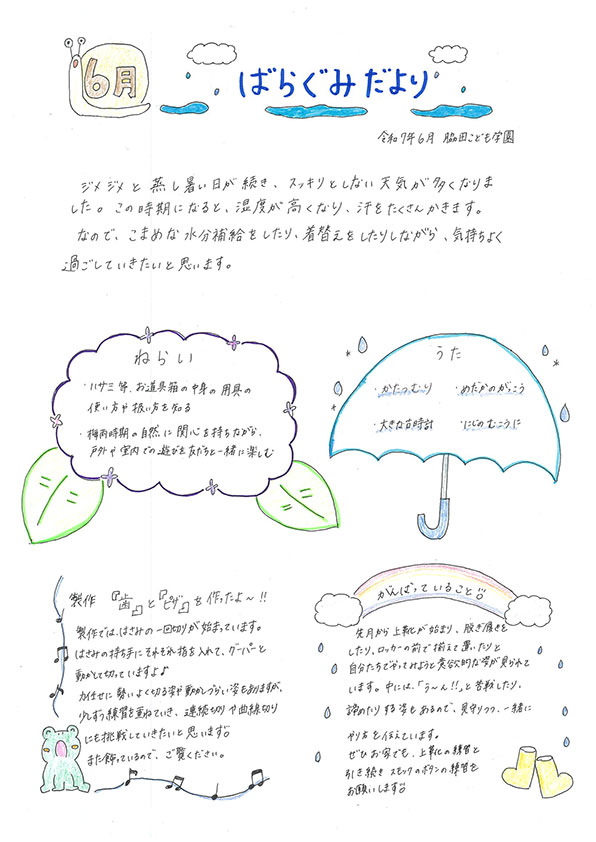 6月
ばらぐみだより
令和7年6月 脇田こども学園
ジメジメと蒸し暑い日が続き、スッキリとしない天気が多くなりま
した。この時期になると、湿度が高くなり、汗をたくさんかきます。
なので、こまめな水分補給をしたり、着替えをしたりしながら、気持ちよく
過ごしていきたいと思います。
ねらい
・ハサミ等、お道具箱の中身の用具の
使い方や扱い方を知る
・梅雨時期の自然に関心を持ちながら、
戸外や室内での遊びを友だちと一緒に楽しむ
うた
・かたつむり ・めだかのがっこう
・大きな古時計 ・にじのむこうに
製作 『歯』と『ピザ』を作ったよ～!!
製作では、はさみの一回切りが始まっています。
はさみの持ち手にそれぞれ指を入れて、グーパーと
動かして切っていますよ♪
力任せに勢いよく切る姿や動かしづらい姿もありますが、
少しずつ練習を重ねていき、連続切りや曲線切り
にも挑戦していきたいと思います。
また飾っているので、ご覧ください。
がんばっていること
先月から上靴が始まり、脱ぎ履きを
したり、ロッカーの前で揃えて置いたりと
自分たちでやってみようと意欲的な姿が見られて
います。中には、「う～ん!!」と苦戦したり、
諦めたりする姿もあるので、見守りつつ、一緒に
やり方を伝えています。
ぜひお家でも、上靴の練習と
引き続きスモックのボタンの練習を
お願いします